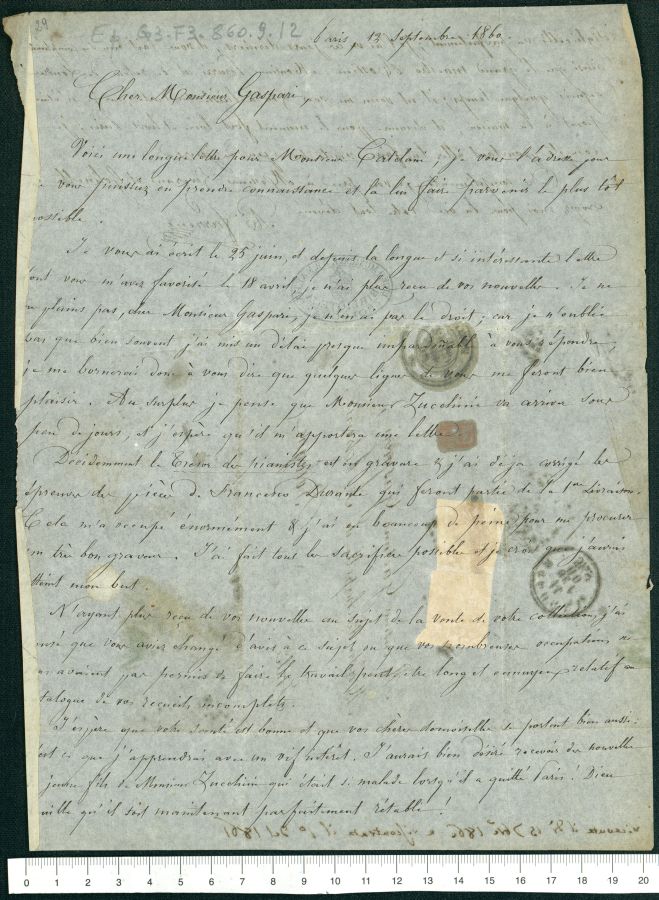 29
Ep. G3-F3-860.9.12
Paris, 12 Septembre 1860.
Cher Monsieur Gaspari,
Voici une longue lettre pour Monsieur Catelani, je vous l'adresse pour
vous puissiez en prendre connaissance et la lui faire parvenir le plus tôt
possible.
Je vous ai écrit le 25 juin, et depuis la longue et si intéressante lettre
dont vous m'avez favorisé le 18 avril, je n'ai plus reçu de vos nouvelles. Je ne
me plains pas, cher Monsieur Gaspari, je n'en ai pas le droit; car je n'oublie
pas que bien souvent j'ai mis un délai presque impardonable à vous répondre,
je me bornerai donc à vous dire que quelques lignes de vous me feront bien
plaisir. Au surplus je pense que Monsieur Zucchini va arriver sous
peu de jours, et j'espère qu'il m'apportera une lettre.
Décidemment le Trésor des pianistes est en gravure & j'ai déja corrigé les
épreuves des pièces de Francesco Durante qui feront partie de la 1re Livraison.
Cela m'a occupé énormément & j'ai eu beaucoup de peine pour me procurer
un très bon graveur. J'ai fait tous les sacrifices possibles et je crois que j'aurai
atteint mon but.
N'ayant plus reçu de vos nouvelles au sujet de la vente de votre collection, j'ai
pensé que vous aviez changé d'avis à ce sujet ou que vos nombreuses occupations ne
vous avaient pas permis de faire le travail peut-être long et ennuyeux relatif au
catalogue de vos recueils incomplets.
J'espère que votre santé est bonne et que vos chères demoiselles se portent bien aussi
est ce que j'apprendrai avec un vif intérêt. J'aurais bien désiré recevoir des nouvelles
jeune fils de Monsieur Zucchini qui était si malade lorsqu'il a quitté Paris! Dieu
veuille qu'il soit maintenant parfaitement rétabli!
0 1 2 3 4 5 6 7 8 9 10 11 12 13 14 15 16 17 18 19 20